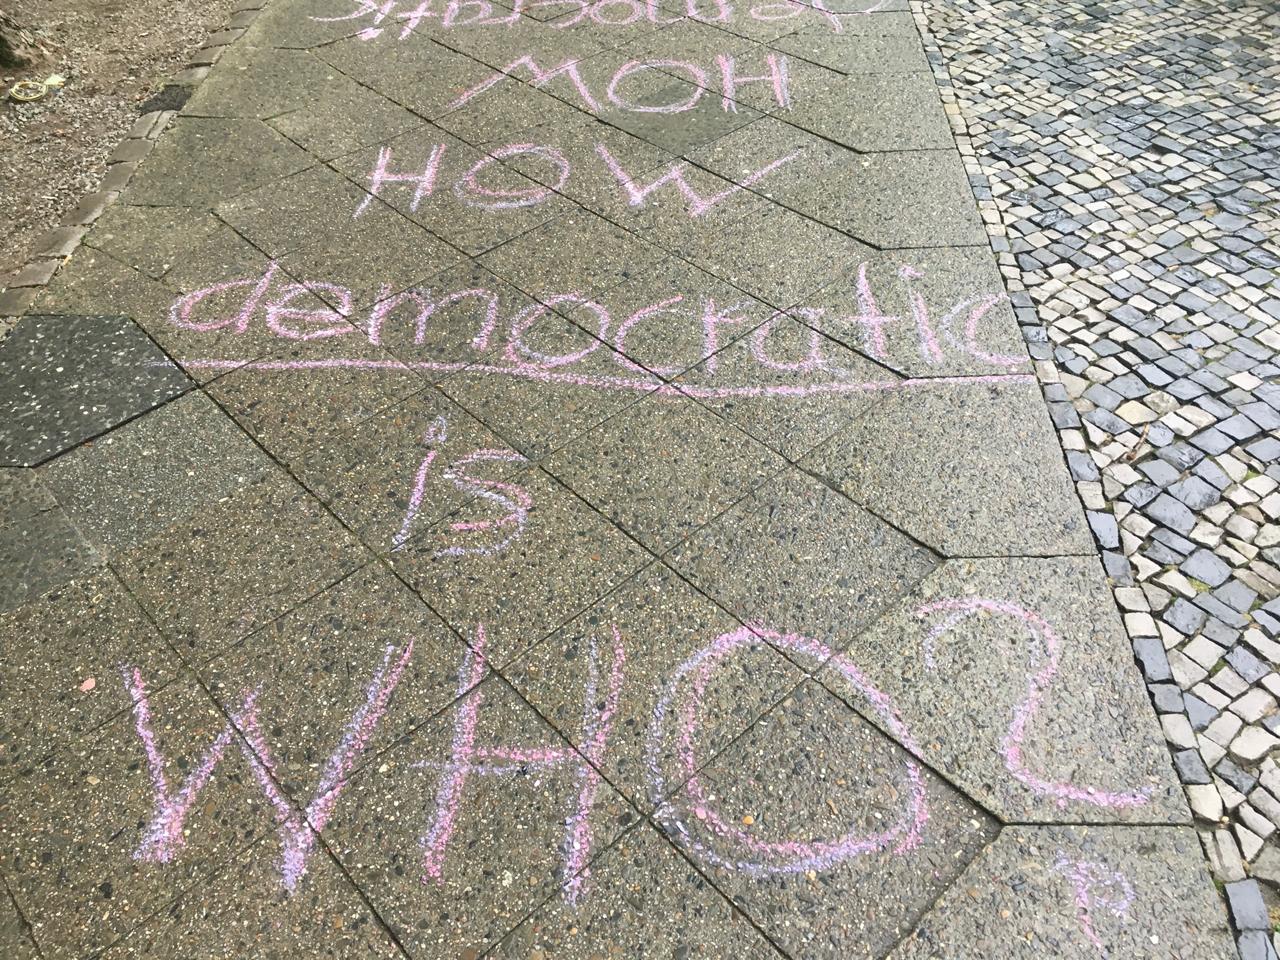 HOW
HOW
democratic
is
WHO?